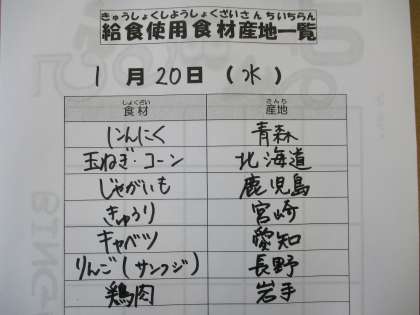 きゅうしょくしようしょくざいさんちいちらん
給食使用食材産地一覧
1月20日(水)
しょくざい さんち
食材 産地
にんにく 青森
玉ねぎ・コーン 北海道
じゃがいも 鹿児島
きゅうり 宮崎
キャベツ 愛知
りんご(サンフジ) 長野
鶏肉 岩手